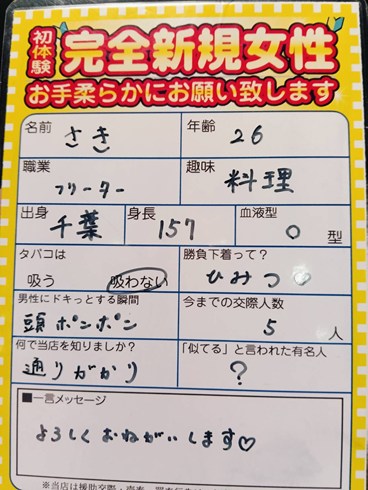 初体験 完全新規女性
お手柔らかにお願い致します
名前 さき 年齢 26
職業 フリーター 趣味 料理
出身 千葉 身長 157 血液型 O 型
タバコは 吸う 吸わない 勝負下着って? ひみつ♡
男性にドキっとする瞬間 頭ポンポン 今までの交際人数 5 人
何で当店を知りましたか? 通りがかり 「似てる」と言われた有名人 ?
■一言メッセージ
よろしくおねがいします♡
※当店は援助交際・売春